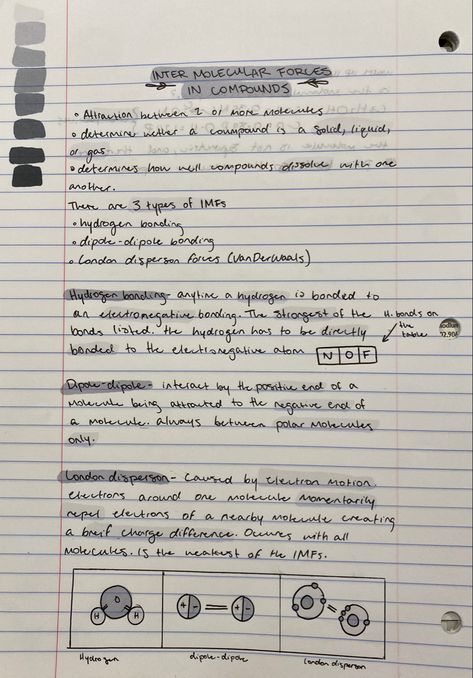 INTER MOLECULAR FORCES
IN COMPOUNDS
• Attraction between 2 or more molecules
• determine wether a coumpound is a solid, liquid,
or gas
• determines how well compounds dissolve with one
another.
There are 3 types of IMFs
• hydrogen bonding
• dipole-dipole bonding
• London disperson forces (VanDerWaals)
Hydrogen bonding- anytime a hydrogen is bonded to
an electronegative bonding. The strongest of the
bonds listed. the hydrogen has to be directly
bonded to the electronegative atom
H. bonds on
the
table
N O F
Dipole-dipole- interact by the positive end of a
molecule being attracted to the negative end of
a molecule. always between polar molecules
only.
London disperson- Caused by electron motion.
electrons around one molecule momentarily
repel electrons of a nearby molecule creating
a breif charge difference. Occures with all
molecules. is the weakest of the IMFs.
O
H H
+ - + -
Hydrogen
dipole-dipole
london disperson